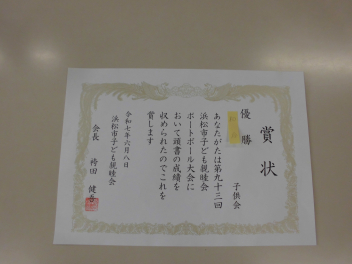 賞状
優勝
子供会
あなたがたは第九十三回
浜松市子ども親睦会
ポートボール大会に
おいて頭書の成績を
収められたのでこれを
賞します
令和七年六月八日
浜松市子ども親睦会
会長 袴田 健吾